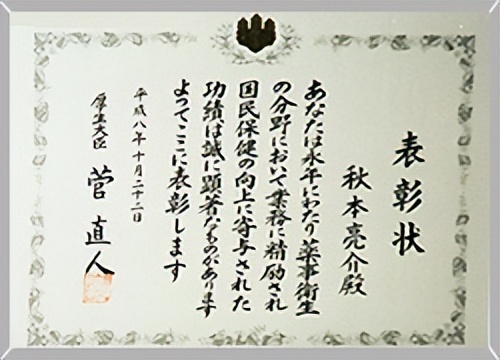 表彰状
秋本亮介殿
あなたは永年にわたり薬事衛生
の分野において業務に精励され
国民保健の向上に寄与された
功績は誠に顕著なものがあります
よってここに表彰します
平成八年十月二十二日
厚生大臣 菅直人